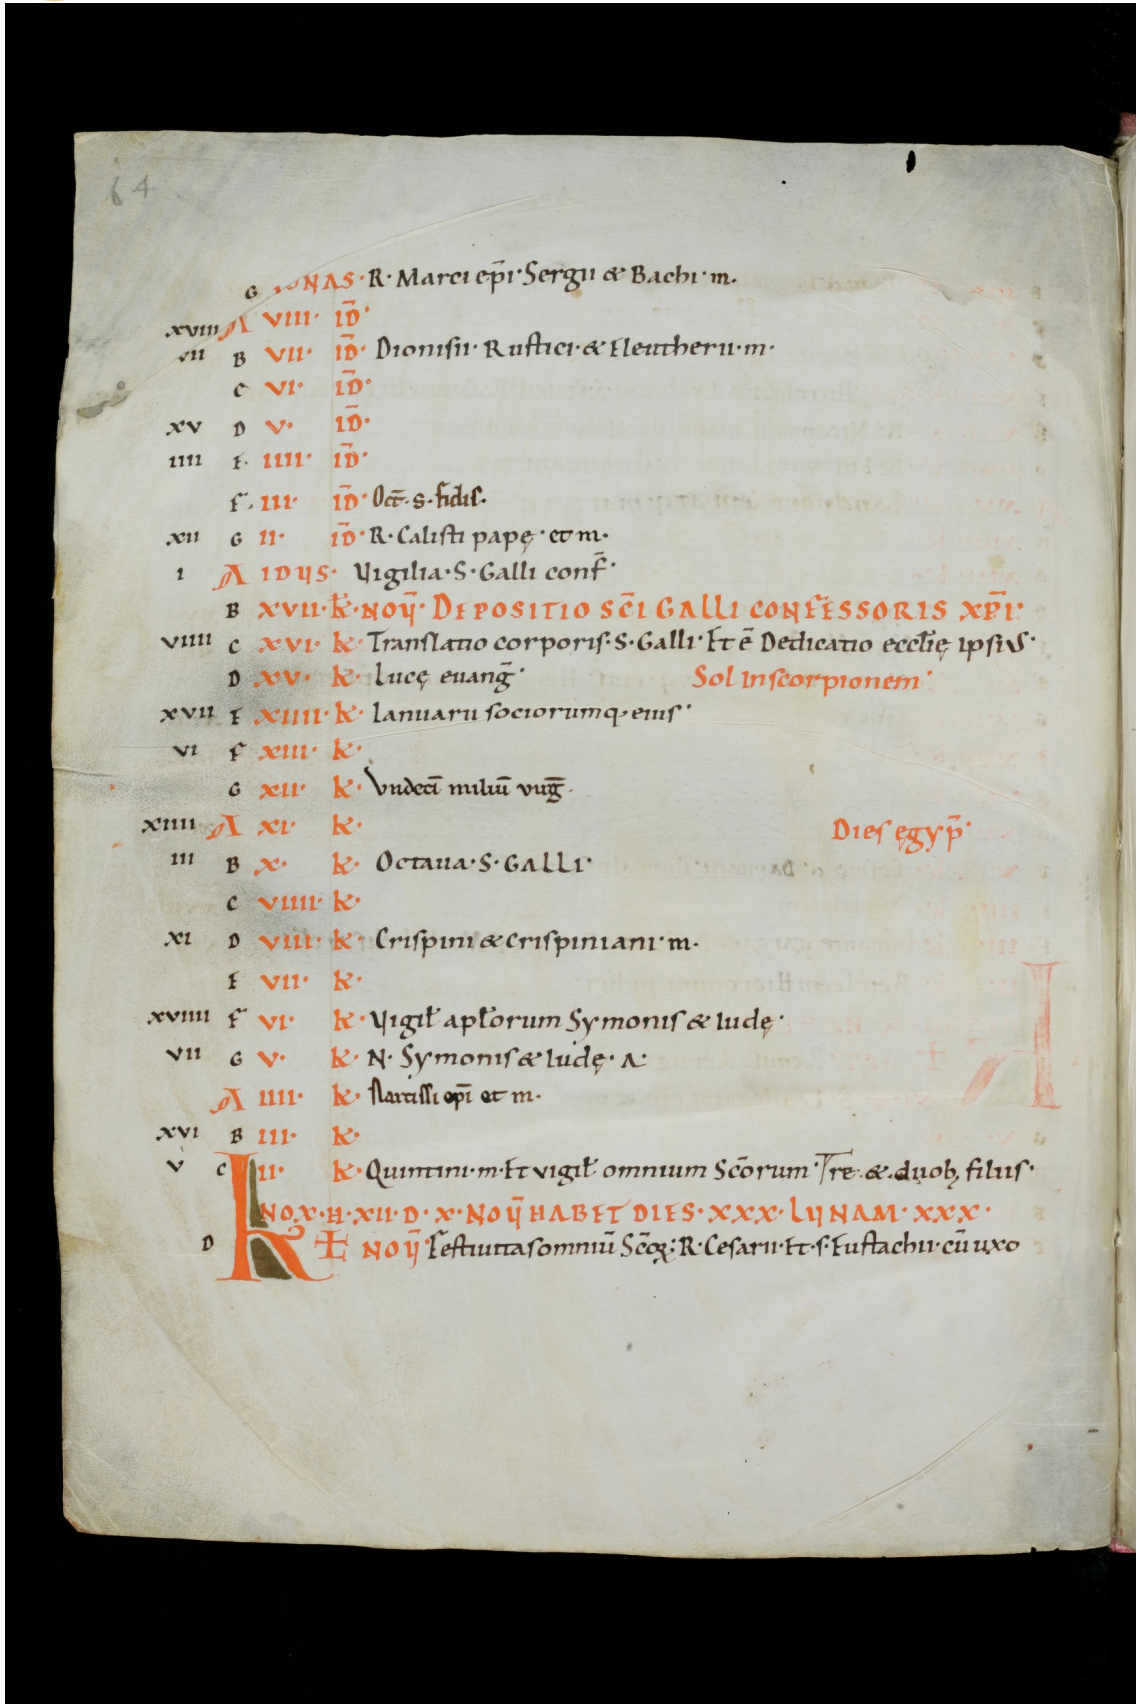 64
G NONAS· R· Marci ep̄i· Sergii & Bachi· m.
xviii A VIII· ID̄·
vii B VII· ID̄· Dionisii· Rustici· & Eleutherii· m·
C VI· ID̄·
xv D V· ID̄·
iiii E· IIII· ID̄·
F· III· ID̄· Oct̄· s· fidis·
xii G II· ID̄· R· Calisti papę· et m·
i A IDUS· Vigilia· S· Galli conf̄·
B XVII· k̄· NOV̄· DEPOSITIO SC̄I GALLI CONFESSORIS XP̄I·
viiii C XVI· k· Translatio corporis· S· Galli· Et ē Dedicatio eccl̄ię ipsius·
D XV· k· Lucę euanḡ· Sol in scorpionem·
xvii E XIIII· k· Ianuarii sociorumq· eius·
vi F XIII· k·
G XII· k· Undeci̅ miliū virg̅·
xiiii A XI· k· Dies ęgyp̄·
iii B X· k· Octaua· S· GALLI·
C VIIII· k·
xi D VIII· k· Crispini & Crispiniani· m·
E VII· k·
xviiii F VI· k· Vigil̄ apl̄orum Symonis & Iudę·
vii G V· k· N· Symonis & Iudę· A·
A IIII· k· Narcissi ep̄i et m·
xvi B III· k·
v C II· k· Quintini· m· Et vigil̄ omnium Sc̄orum· & duob; filiis·
K NOX· H· XII· D· X· NOV̄ HABET DIES· XXX· LUNAM· XXX·
D NOV̄· Festiuitas omniū Sc̄oꝝ; R· Cesarii· Et· s· Eustachii· cū uxo